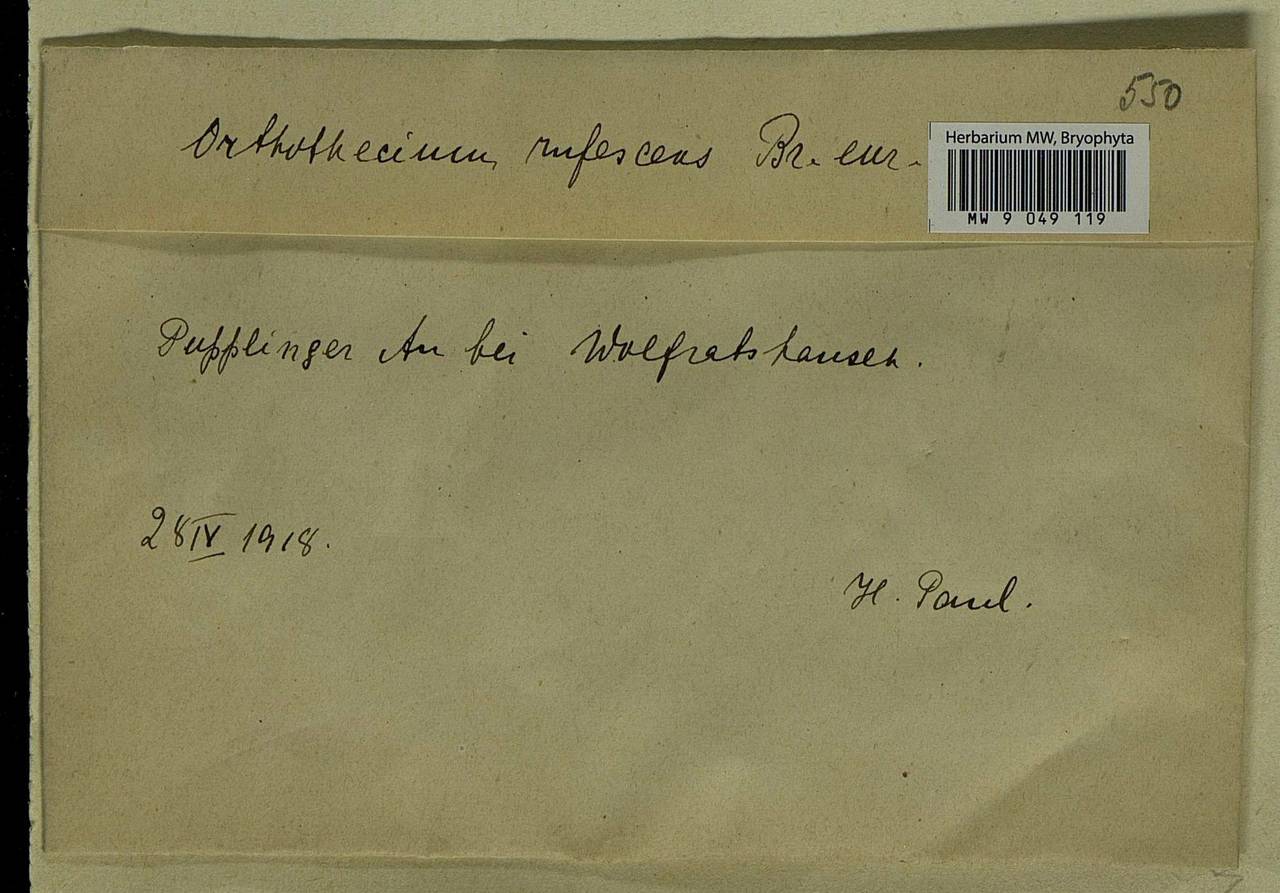 550
Orthothecium rufescens Br. eur.
Herbarium MW, Bryophyta
MW 9 049 119
Pupplinger Au bei Wolfratshausen.
28 IV 1918.
H. Paul.